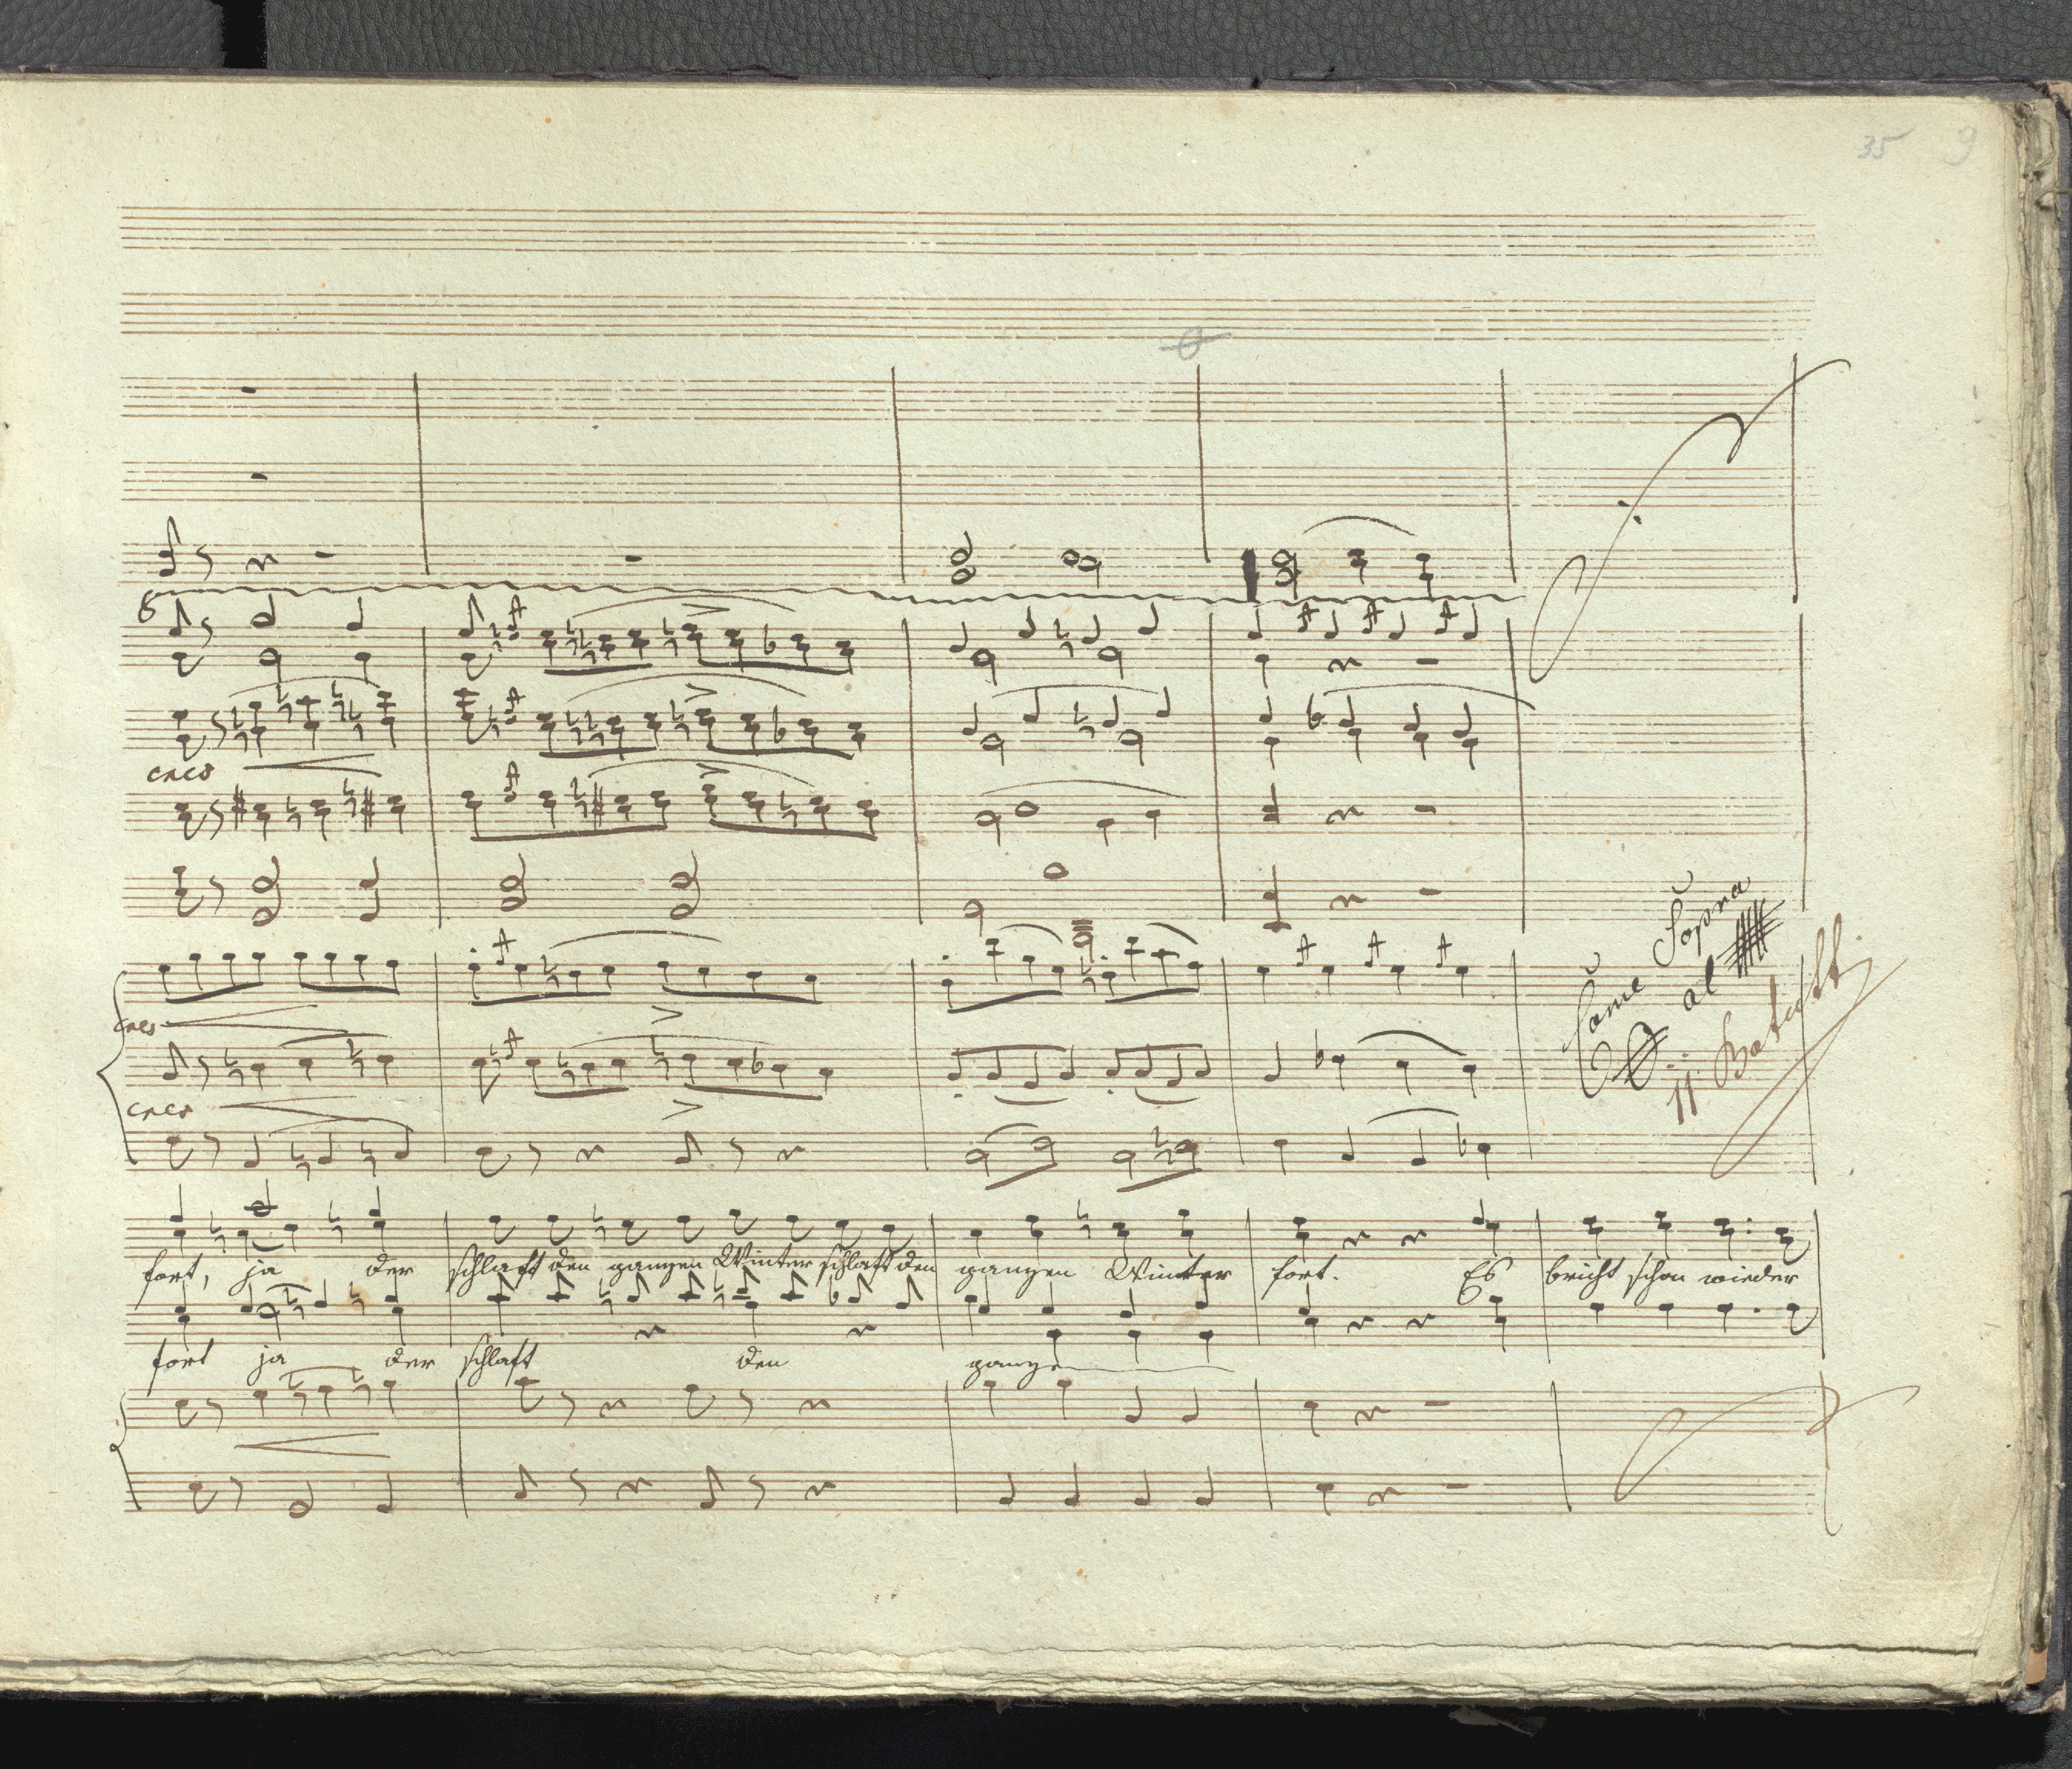 35 9
cresc
cres
cresc
Come Sopra
al
11 Batutti
fort, ja der schlaft den ganzen Winter schlaft den ganzen Winter fort. Es bricht schon wieder
fort ja der schlaft den ganze